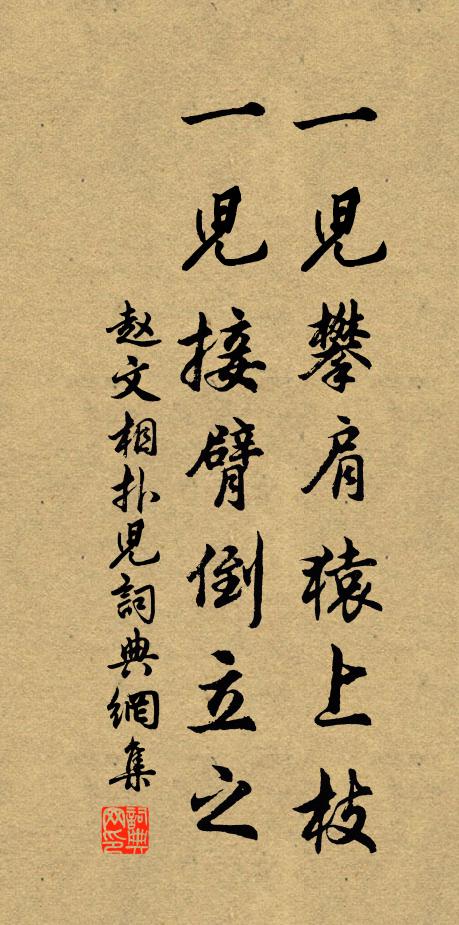 一児攀肩猿上枝
一児接臂倒立之
赵文相扑児詞典網集
詞典网印